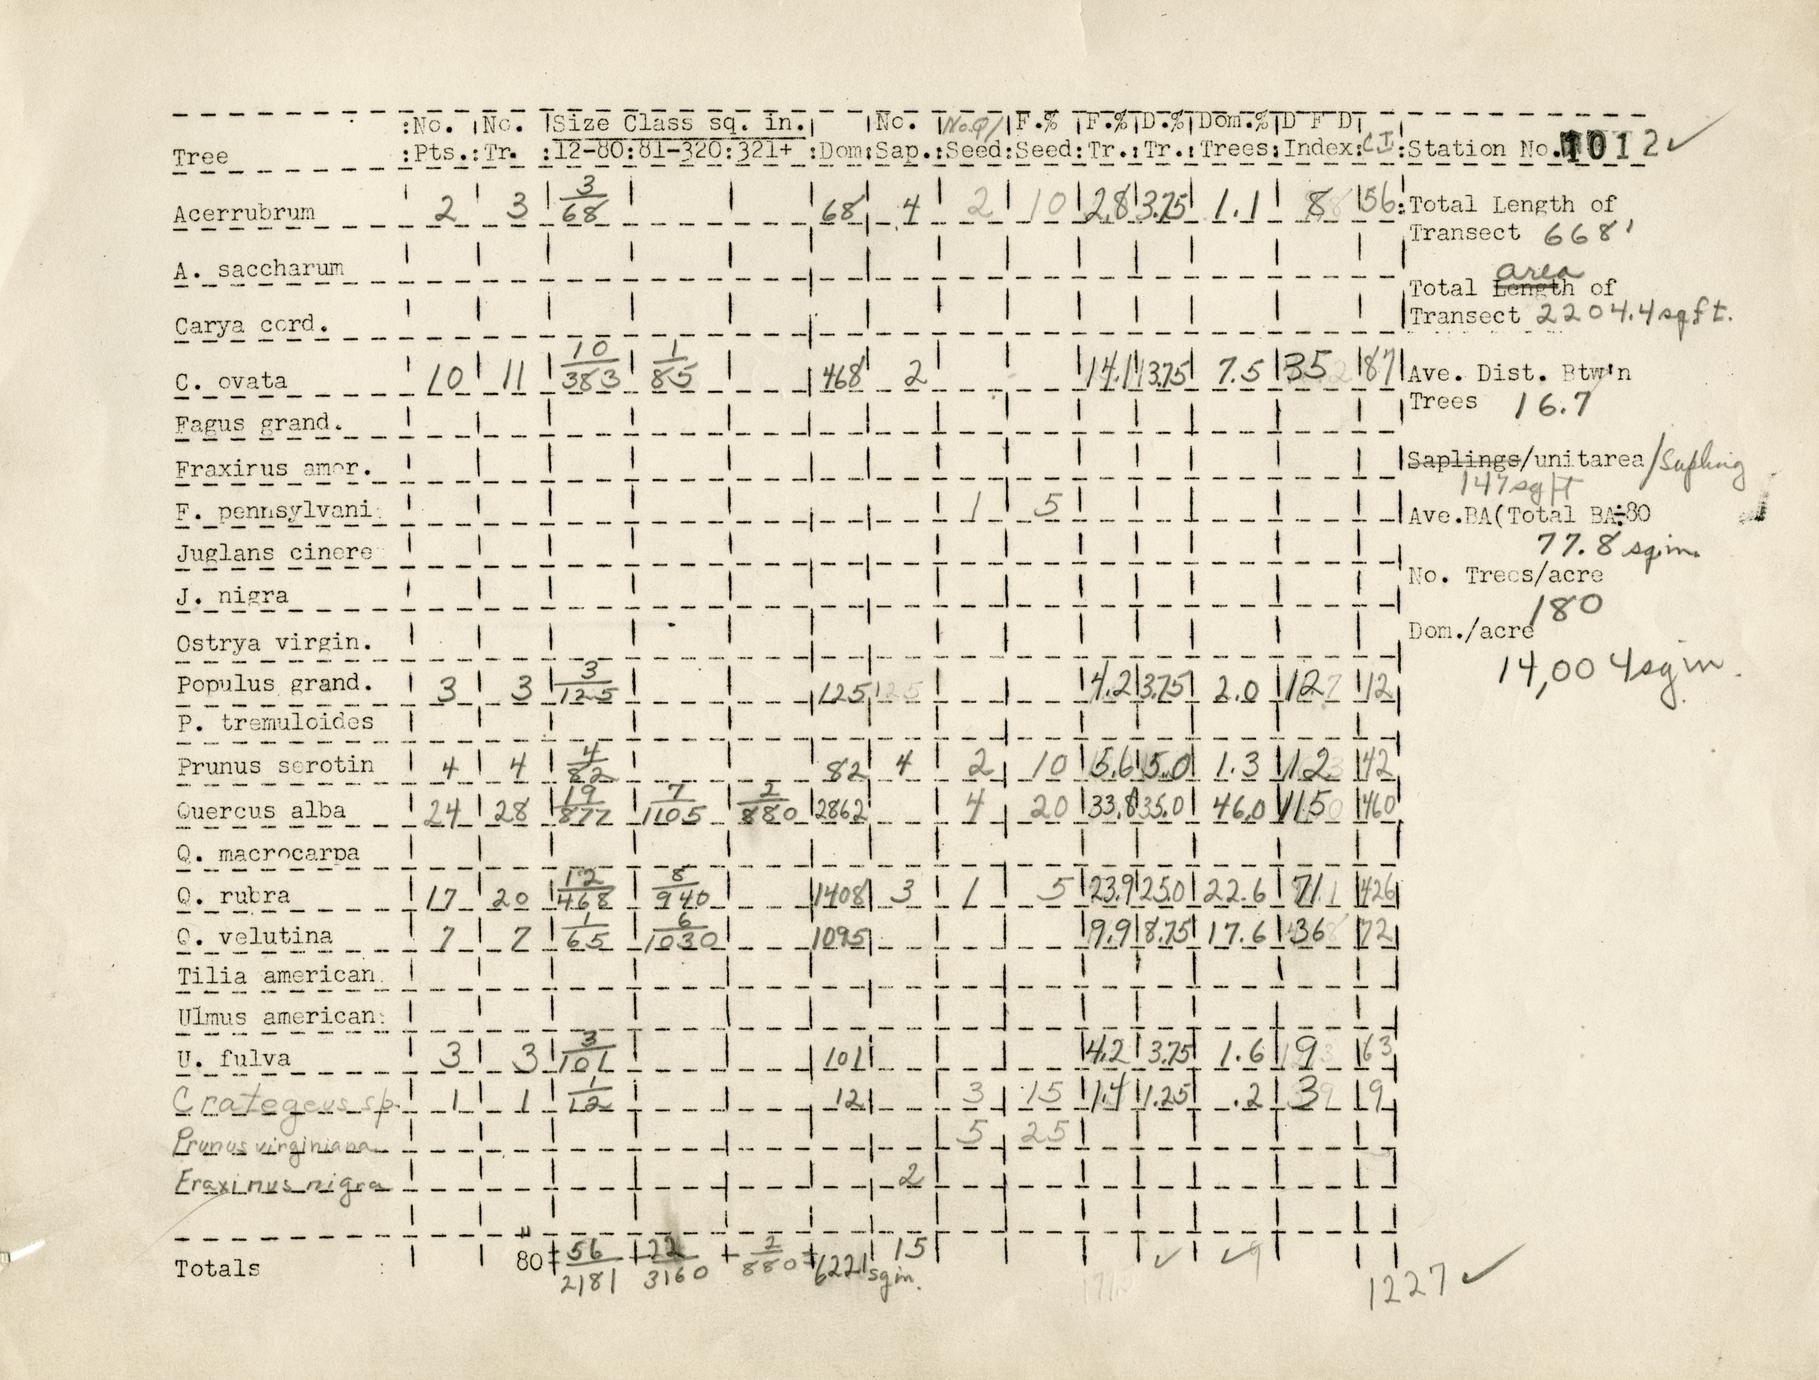 No. No. Size Class sq. in. No. No.Q/ F.% F.% D.% Dom.% D F D
Tree Pts. Tr. 12-80 81-320 321+ Dom Sap. Seed Seed Tr. Tr. Trees Index CI Station No. 1012 ✓
Acerrubrum 2 3 3/68 68 4 2 10 2.8 3.75 1.1 8 56
Total Length of
Transect 668'
A. saccharum
Total Length area of
Transect 2204.4 sq ft.
Carya cord.
C. ovata 10 11 10/383 1/85 468 2 14.1 13.75 7.5 35 87
Ave. Dist. Btw'n
Trees 16.7
Fagus grand.
Fraxirus amer.
Saplings/unitarea/Sapling
147 sq ft
F. pennsylvani 1 5
Ave.BA(Total BA÷80
77.8 sq in.
Juglans cinere
J. nigra
No. Trees/acre
180
Ostrya virgin.
Dom./acre
14,004 sq in.
Populus grand. 3 3 3/125 125 125 4.2 3.75 2.0 12 12
P. tremuloides
Prunus serotin 4 4 4/82 82 4 2 10 5.6 5.0 1.3 12 42
Quercus alba 24 28 19/877 7/1105 2/880 2862 4 20 33.8 35.0 46.0 115 460
Q. macrocarpa
Q. rubra 17 20 12/468 8/940 1408 3 1 5 23.9 25.0 22.6 71 426
Q. velutina 7 7 1/65 6/1030 1095 9.9 8.75 17.6 36 72
Tilia american
Ulmus american
U. fulva 3 3 3/101 101 4.2 3.75 1.6 9 63
Crategeus sp. 1 1 1/12 12 3 15 1.4 1.25 .2 3 9
Prunus virginiana 5 25
Fraxinus nigra 2
Totals 80 = 56/2181 + 22/3160 + 2/880 = 6221 sq in. 15 ✓ ✓
1227 ✓